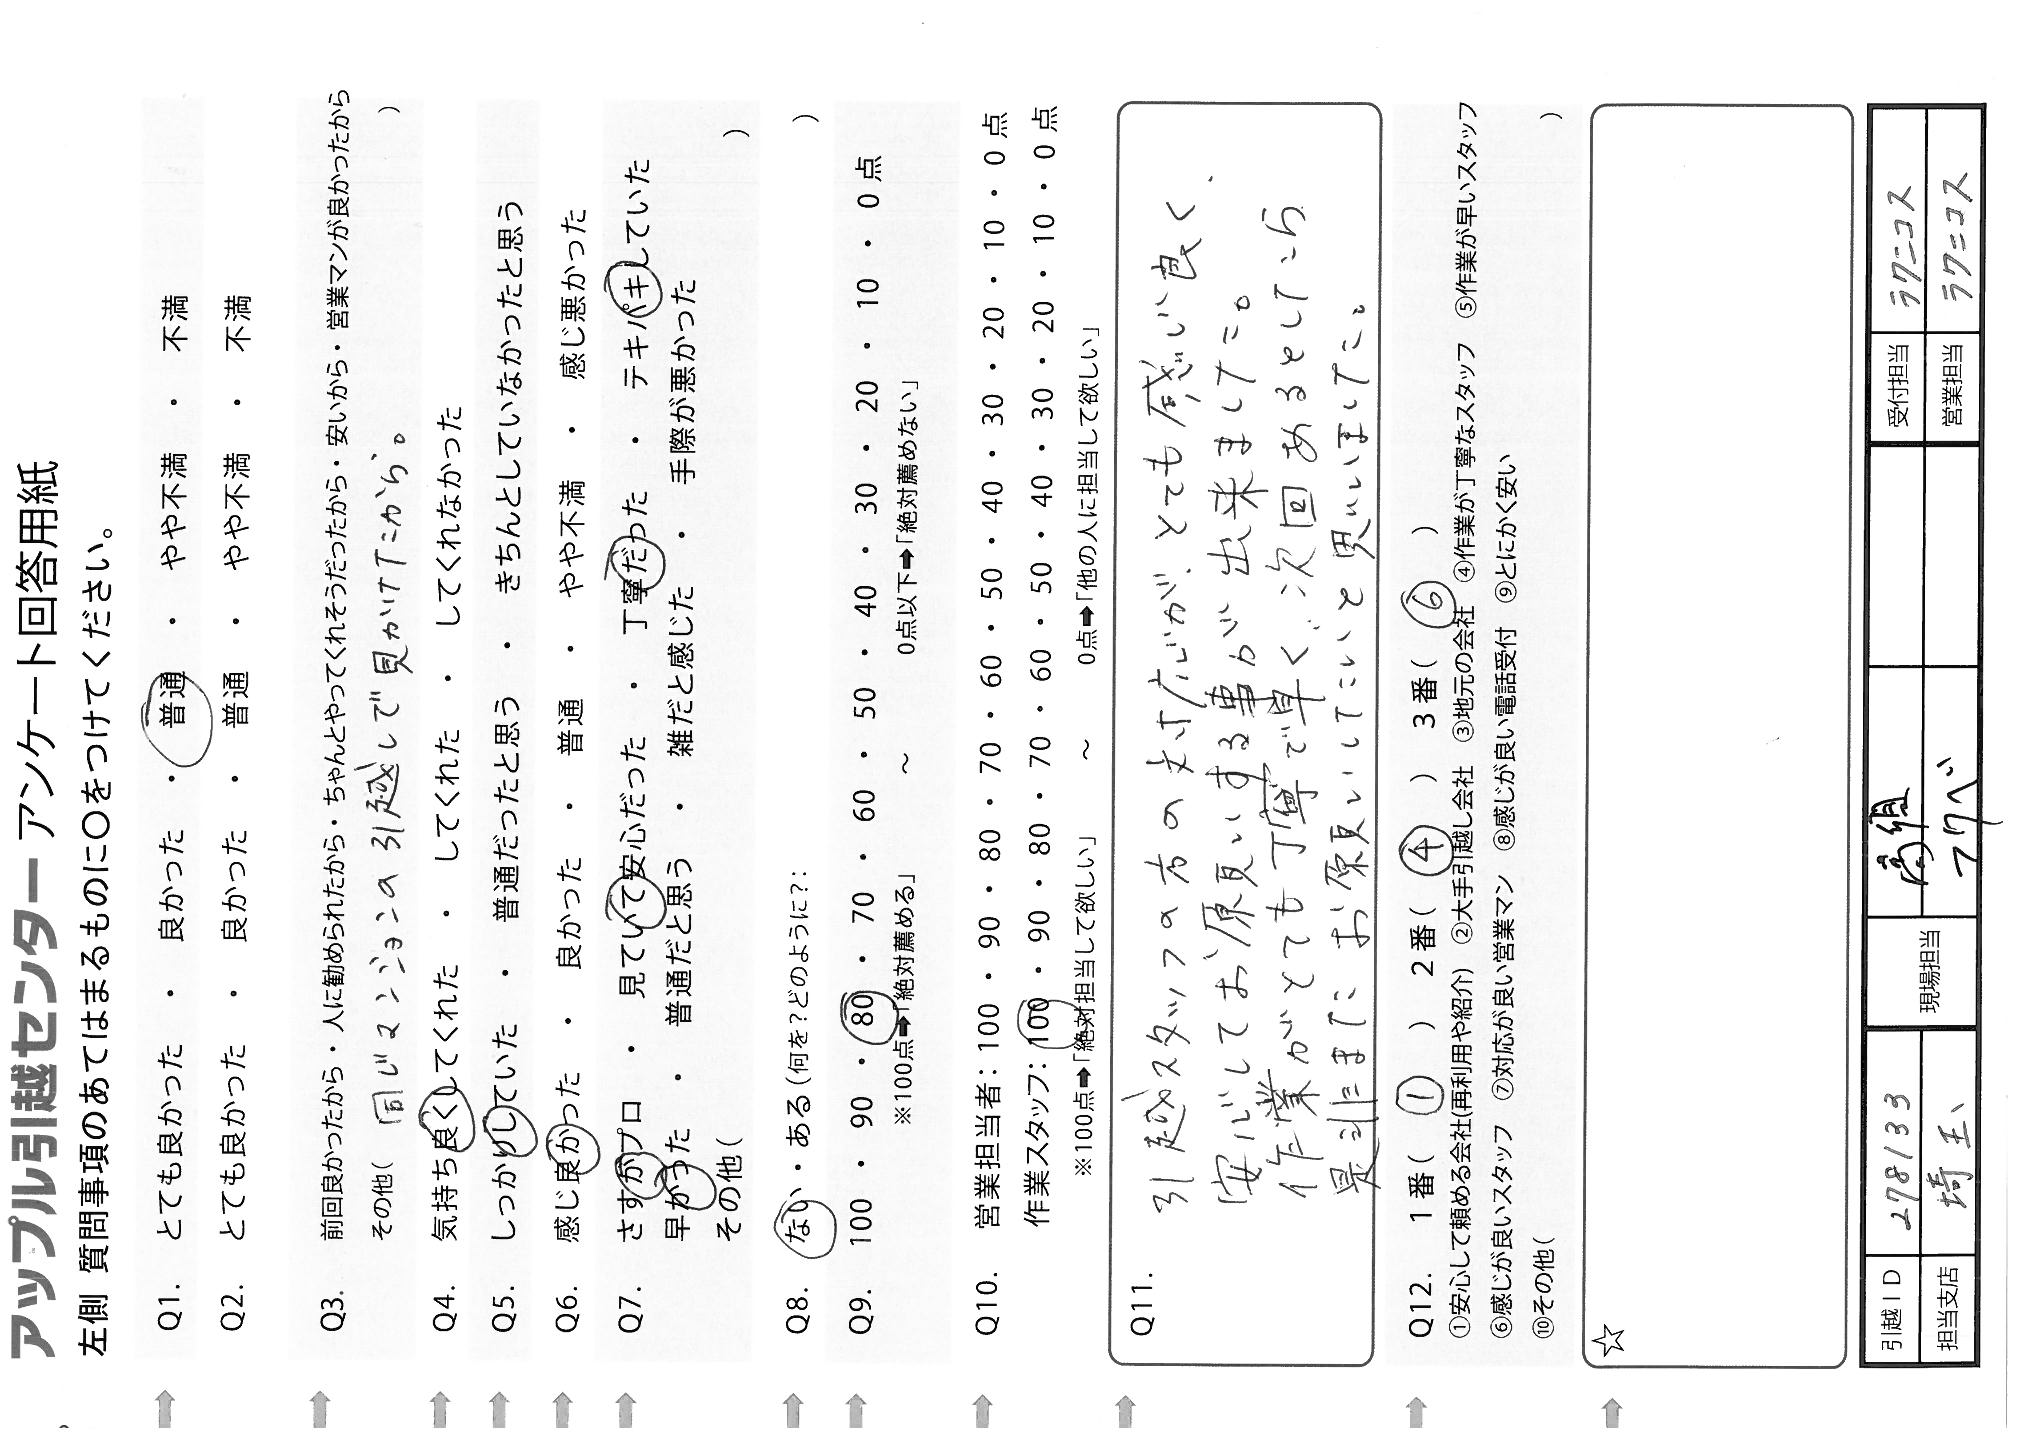 アップル引越センター アンケート回答用紙
左側 質問事項のあてはまるものに〇をつけてください。
Q1. とても良かった ・ 良かった ・ 普通 ・ やや不満 ・ 不満
Q2. とても良かった ・ 良かった ・ 普通 ・ やや不満 ・ 不満
Q3. 前回良かったから・人に勧められたから・ちゃんとやってくれそうだったから・安いから・営業マンが良かったから
その他( 同じマンションの引越しで見かけたから。 )
Q4. 気持ち良くしてくれた ・ してくれた ・ してくれなかった
Q5. しっかりしていた ・ 普通だったと思う ・ きちんとしていなかったと思う
Q6. 感じ良かった ・ 良かった ・ 普通 ・ やや不満 ・ 感じ悪かった
Q7. さすがプロ ・ 見ていて安心だった ・ 丁寧だった ・ テキパキしていた
早かった ・ 普通だと思う ・ 雑だと感じた ・ 手際が悪かった
その他( )
Q8. ない・ある(何を?どのように?: )
Q9. 100 ・ 90 ・ 80 ・ 70 ・ 60 ・ 50 ・ 40 ・ 30 ・ 20 ・ 10 ・ 0 点
※100点➡「絶対薦める」 ～ 0点以下➡「絶対薦めない」
Q10. 営業担当者: 100 ・ 90 ・ 80 ・ 70 ・ 60 ・ 50 ・ 40 ・ 30 ・ 20 ・ 10 ・ 0 点
作業スタッフ: 100 ・ 90 ・ 80 ・ 70 ・ 60 ・ 50 ・ 40 ・ 30 ・ 20 ・ 10 ・ 0 点
※100点➡「絶対担当して欲しい」 ～ 0点➡「他の人に担当して欲しい」
Q11.
引越スタッフの方の対応が、とても感じ良く、
安心してお願いする事が出来ました。
作業がとても丁寧で早く、次回あるとしたら
是非またお願いしたいと思いました。
Q12. 1番( ① ) 2番( ④ ) 3番( ⑥ )
①安心して頼める会社(再利用や紹介) ②大手引越し会社 ③地元の会社 ④作業が丁寧なスタッフ ⑤作業が早いスタッフ
⑥感じが良いスタッフ ⑦対応が良い営業マン ⑧感じが良い電話受付 ⑨とにかく安い
⑩その他( )
☆
引越ID 278133 現場担当 受付担当 ラクニコス
担当支店 埼玉 営業担当 ラクニコス